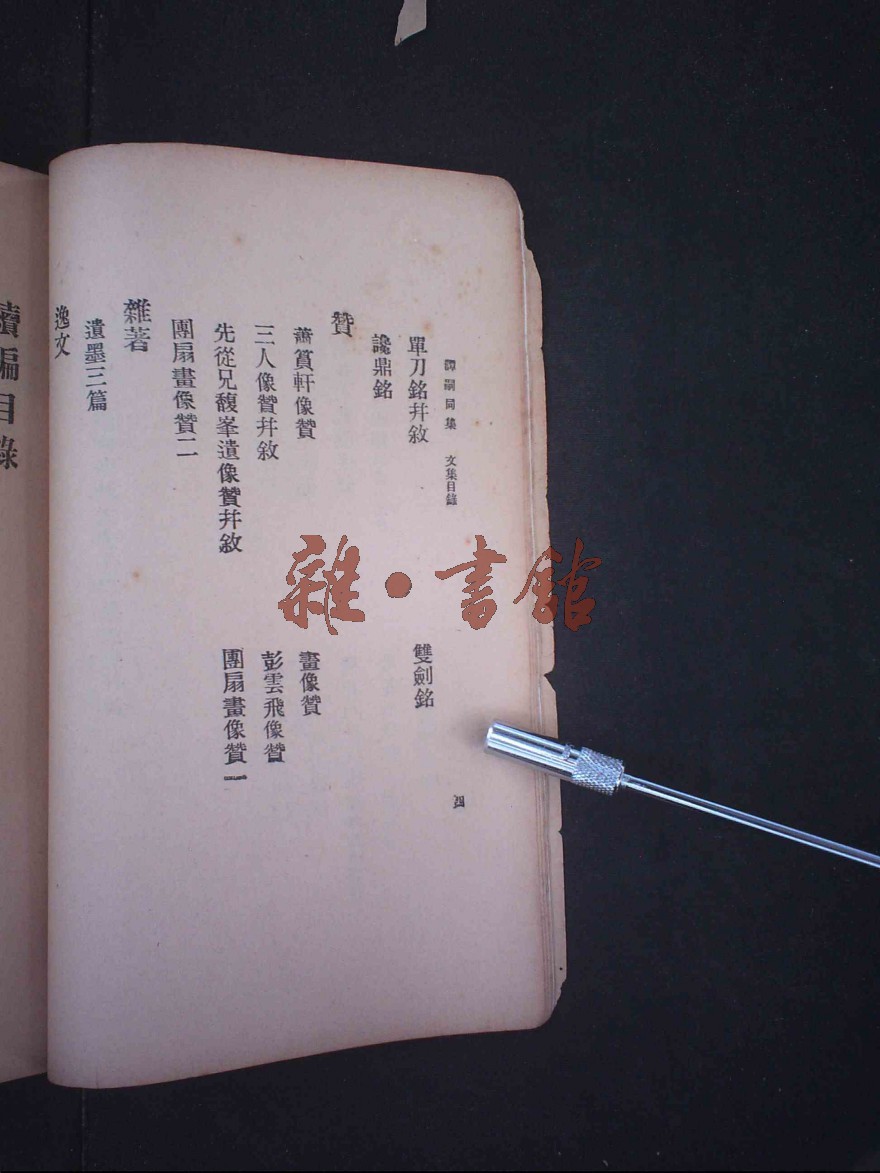 譚嗣同集 文集目錄
四
單刀銘幷敘
雙劍銘
讒鼎銘
贊
蕭筼軒像贊
畫像贊
三人像贊幷敘
彭雲飛像贊
先從兄馥峯遺像贊幷敘
團扇畫像贊一
團扇畫像贊二
雜著
遺墨三篇
逸文
續編目錄
雜·書館